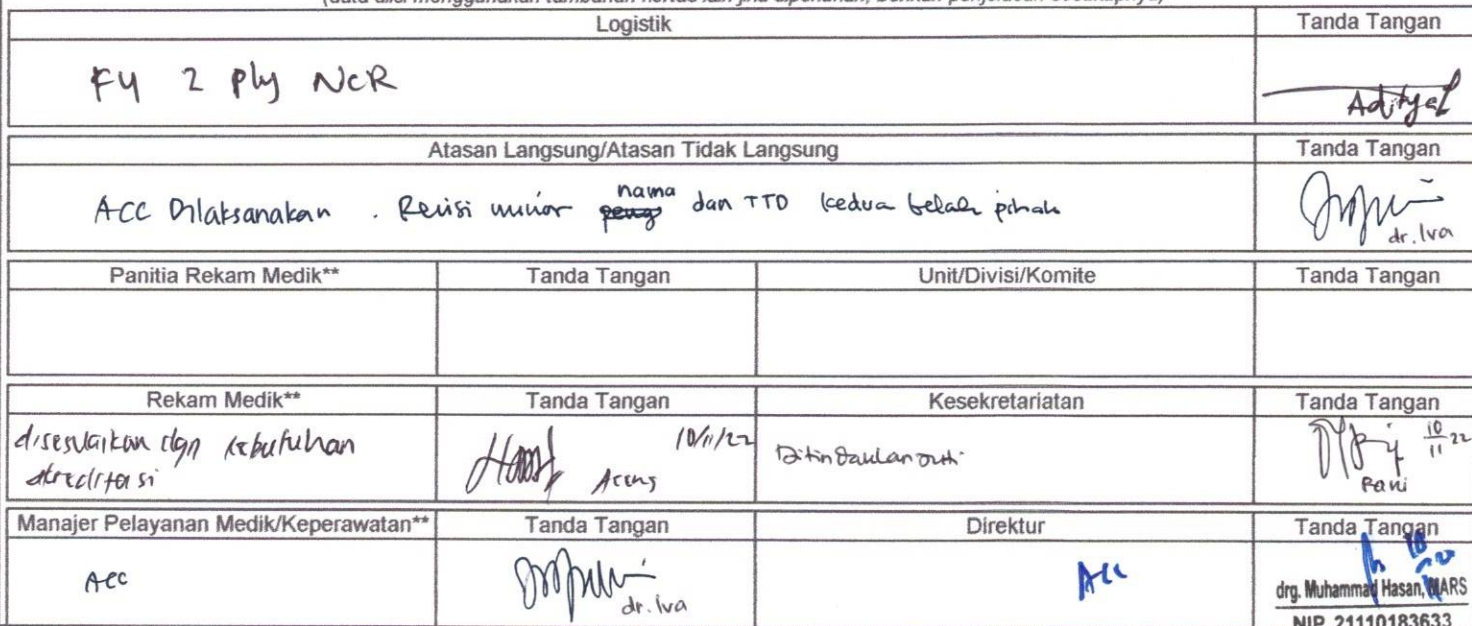 Logistik Tanda Tangan
F4 2 Ply NCR
Aditya
Atasan Langsung/Atasan Tidak Langsung Tanda Tangan
ACC Dilaksanakan . Revisi minor nama dan TTD kedua belah pihak
dr. Iva
Panitia Rekam Medik** Tanda Tangan Unit/Divisi/Komite Tanda Tangan
Rekam Medik** Tanda Tangan Kesekretariatan Tanda Tangan
disesuaikan dgn kebutuhan
akreditasi
10/11/22
Aceng
Ditindaklanjuti
10/11 22
Rani
Manajer Pelayanan Medik/Keperawatan** Tanda Tangan Direktur Tanda Tangan
ACC
dr. Iva
ACC
drg. Muhammad Hasan, MARS
NIP. 21110183633